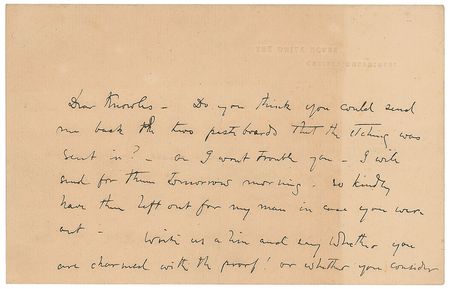 THE WHITE HOUSE
CHELSEA EMBANKMENT
Dear Knowles - Do you think you could send
me back the two pasteboards that the etching was
sent in? - or I wont trouble you - I will
send for them tomorrow morning. so kindly
have them left out for my man in case you were
out - Write us a line and say whether you
are charmed with the proof! or whether you consider